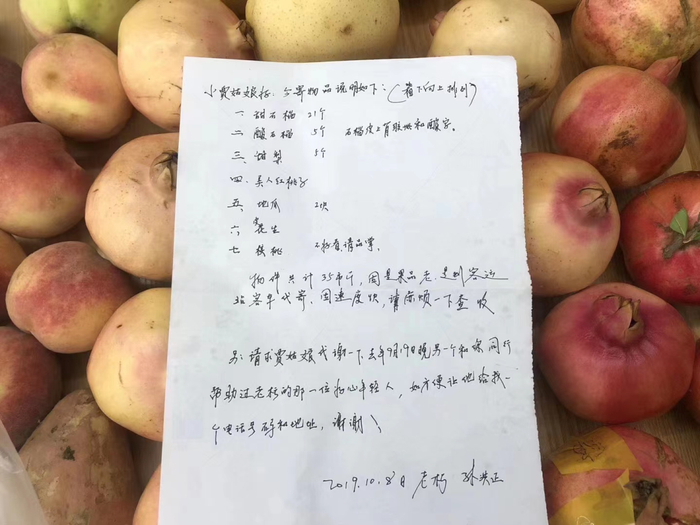 小贾姑娘好，今寄物品说明如下：（箱下向上排列）
一、甜石榴 21个
二、酸石榴 5个 石榴皮上有胶纸和酸字。
三、甜梨 5个
四、美人红桃子
五、地瓜 2块
六、花生
七、核桃 不好看请品尝。
物件共计35市斤，因是果品老是到客运
站客车代寄，因速度快，请麻烦一下查收
另：请求贾姑娘代谢一下，去年9月19日晚另一个和你同行
帮助过老朽的那一位热心年轻人，如方便让她给我一
个电话号码和地址，谢谢！
2019.10.8日 老朽 孙洪正